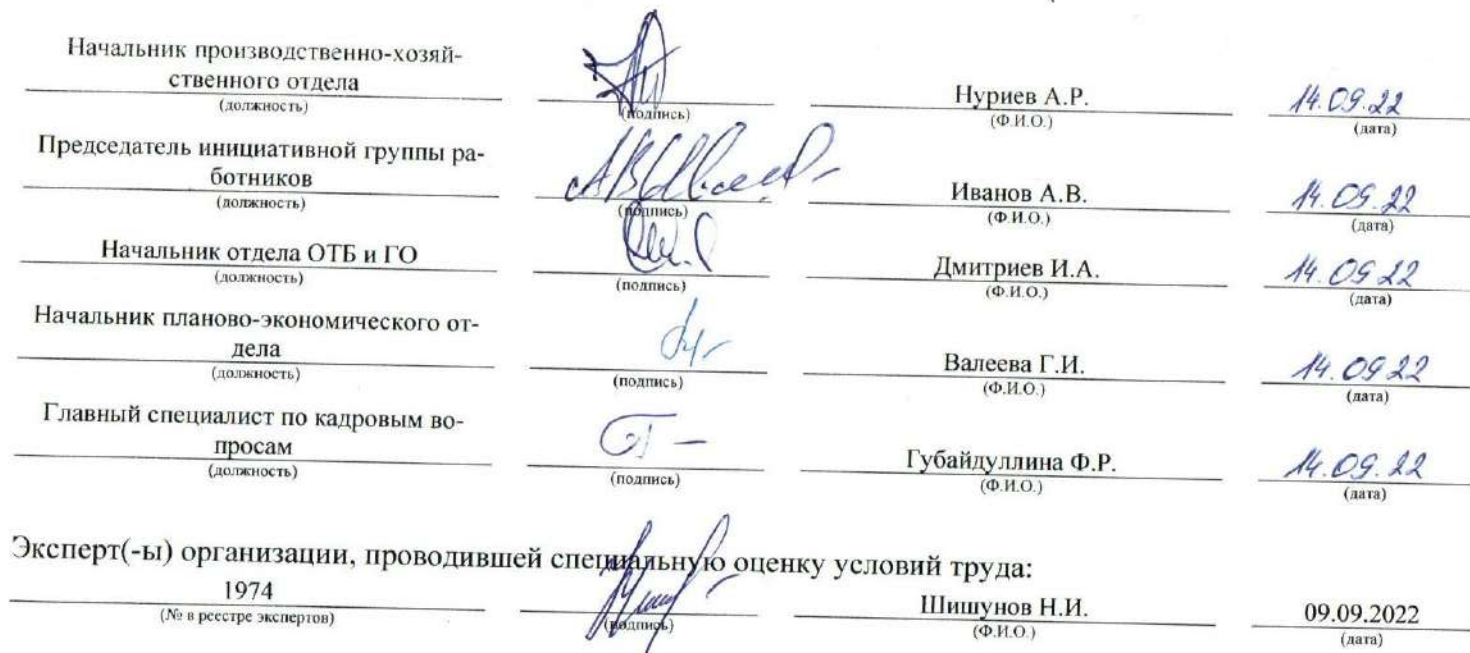 Начальник производственно-хозяй-
ственного отдела
(должность) (подпись) Нуриев А.Р. (Ф.И.О.) 14.09.22 (дата)
Председатель инициативной группы ра-
ботников
(должность) (подпись) Иванов А.В. (Ф.И.О.) 14.09.22 (дата)
Начальник отдела ОТБ и ГО
(должность) (подпись) Дмитриев И.А. (Ф.И.О.) 14.09.22 (дата)
Начальник планово-экономического от-
дела
(должность) (подпись) Валеева Г.И. (Ф.И.О.) 14.09.22 (дата)
Главный специалист по кадровым во-
просам
(должность) (подпись) Губайдуллина Ф.Р. (Ф.И.О.) 14.09.22 (дата)
Эксперт(-ы) организации, проводившей специальную оценку условий труда:
1974 Шишунов Н.И. 09.09.2022
(№ в реестре экспертов) (подпись) (Ф.И.О.) (дата)